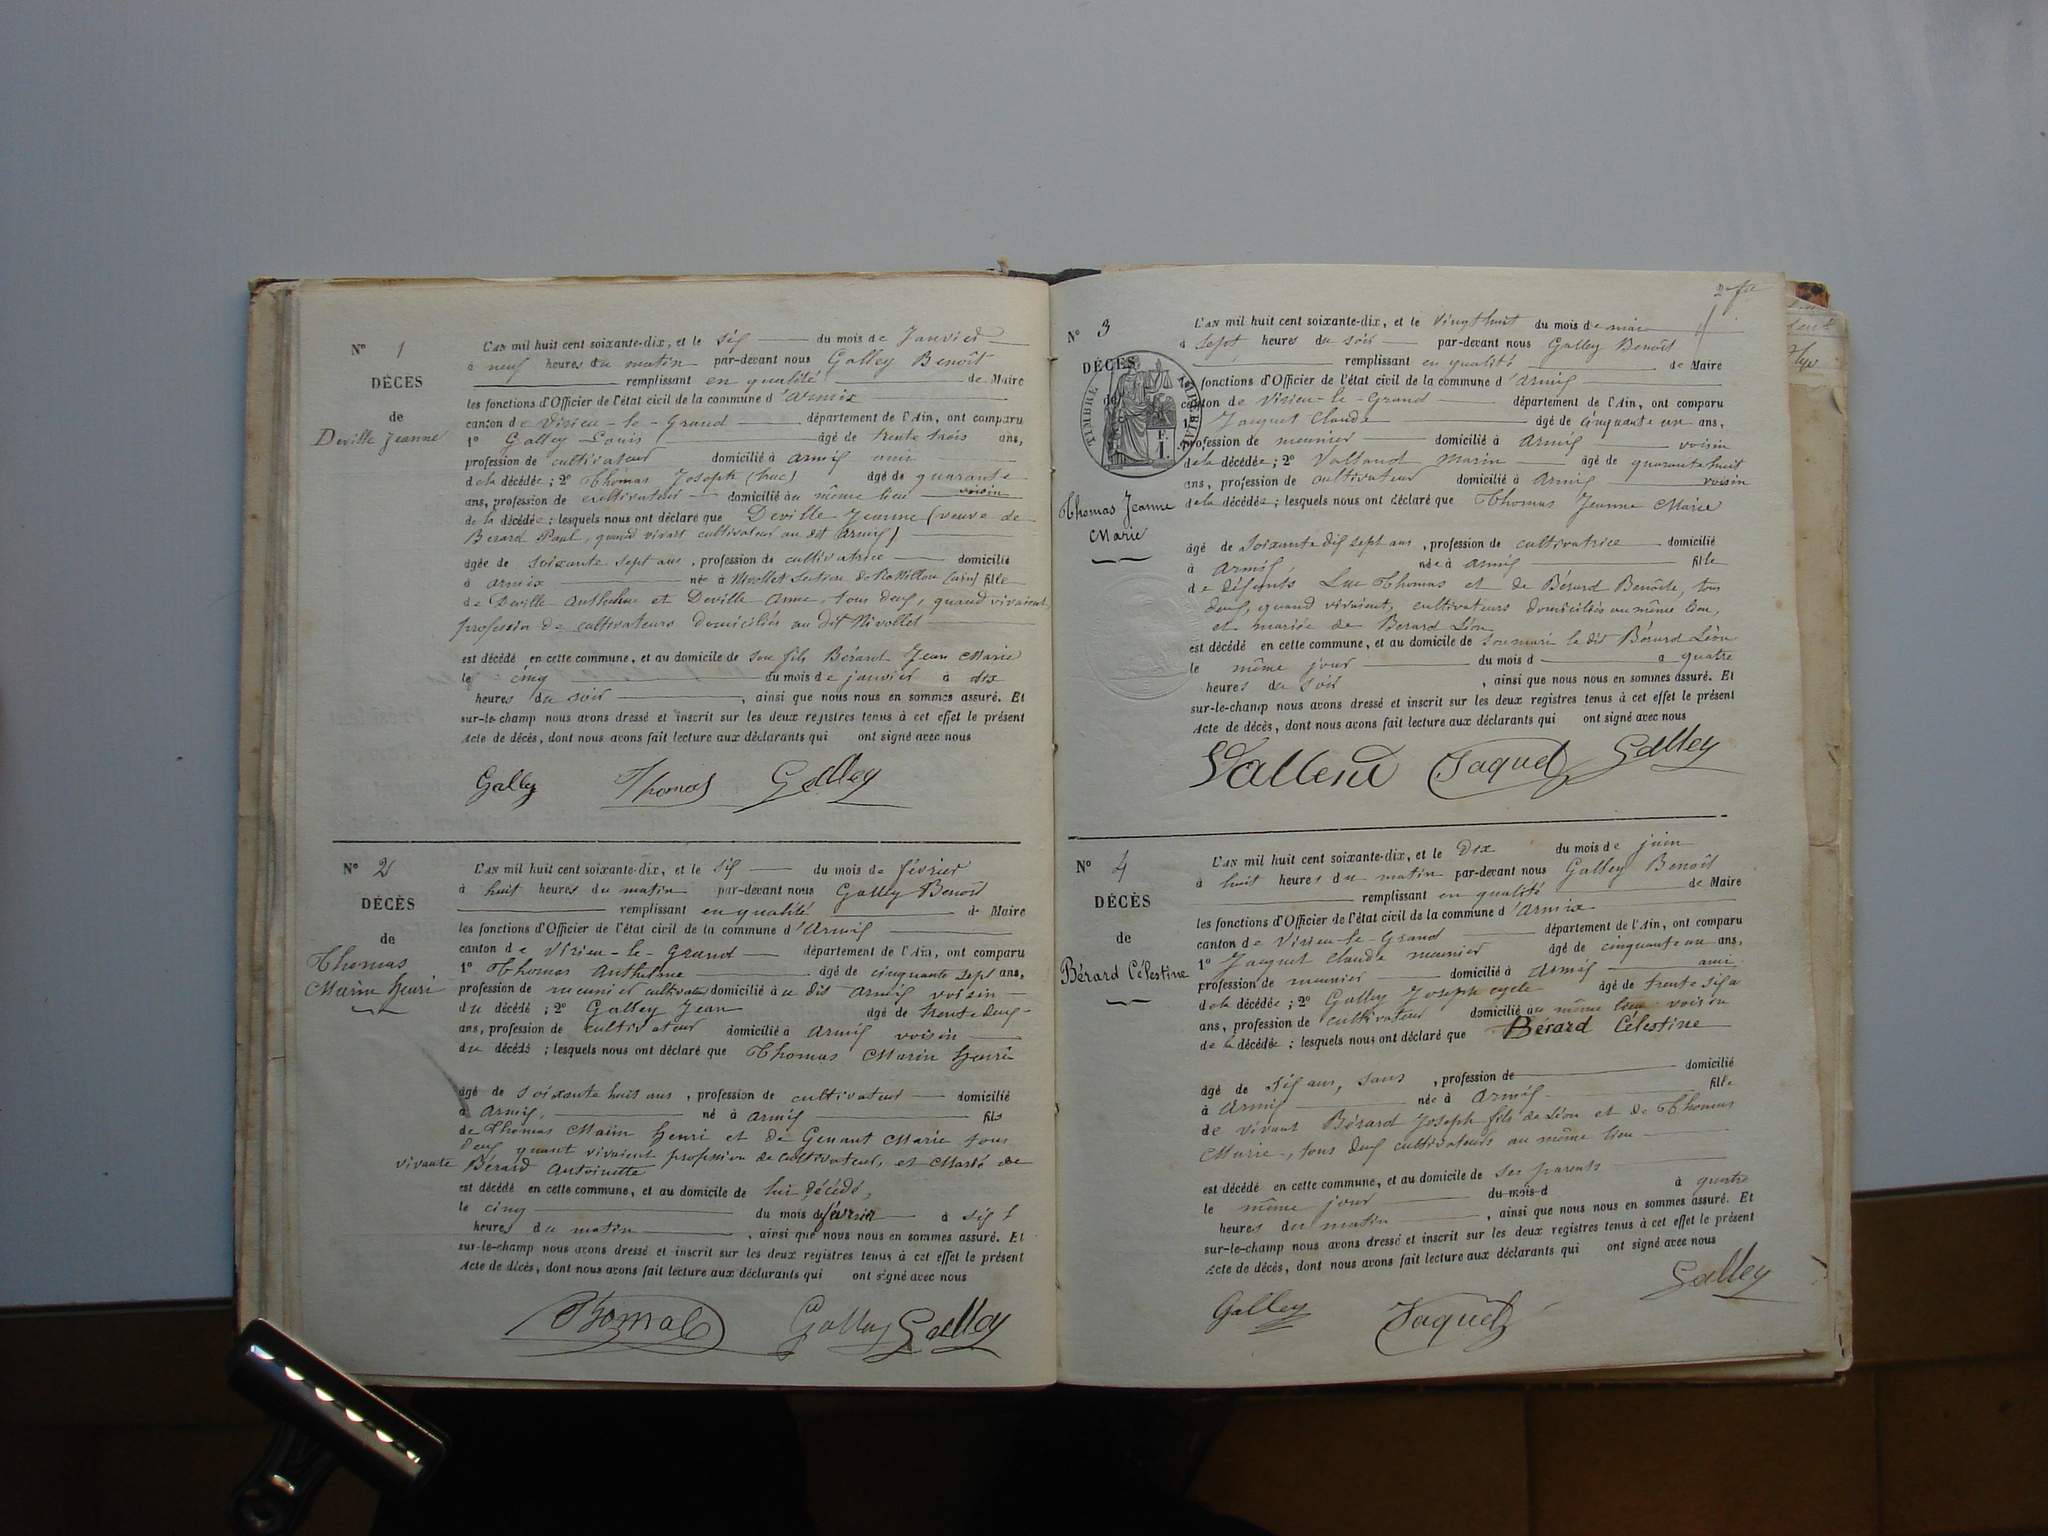 N° 1
DÉCES
de
Deville Jeanne
L'AN mil huit cent soixante-dix, et le six du mois de Janvier
à neuf heures du matin par-devant nous Galley Benoît
remplissant en qualité de Maire
les fonctions d'Officier de l'état civil de la commune d'Armix
canton de Virieu-le-Grand département de l'Ain, ont comparu
1° Galley Louis âgé de trente trois ans,
profession de cultivateur domicilié à Armix ami
de la décédée; 2° Thomas Joseph (Luc) âgé de quarante
ans, profession de cultivateur domicilié au même lieu voisin
de la décédée; lesquels nous ont déclaré que Deville Jeanne (veuve de
Berard Paul, quand vivait cultivateur au dit Armix)
âgée de soixante sept ans, profession de cultivatrice domicilié
à Armix née à Nivollet section de (ain) fille
de Deville Anthelme et Deville Anne, tous deux, quand vivaient,
profession de cultivateurs domiciliés au dit Nivollet
est décédé en cette commune, et au domicile de son fils Bérard Jean Marie
le cinq du mois de janvier à dix
heures du soir, ainsi que nous nous en sommes assuré. Et
sur-le-champ nous avons dressé et inscrit sur les deux registres tenus à cet effet le présent
Acte de décès, dont nous avons fait lecture aux déclarants qui ont signé avec nous
Galley Thomas Galley
N° 2
DÉCÈS
de
Thomas
Marin henri
L'AN mil huit cent soixante-dix, et le six du mois de février
à huit heures du matin par-devant nous Galley Benoît
remplissant en qualité de Maire
les fonctions d'Officier de l'état civil de la commune d'Armix
canton de Virieu-le-Grand département de l'Ain, ont comparu
1° Thomas Anthelme âgé de cinquante sept ans,
profession de meunier cultivateur domicilié au dit Armix voisin
du décédé; 2° Galley Jean âgé de trente deux
ans, profession de cultivateur domicilié à Armix voisin
du décédé; lesquels nous ont déclaré que Thomas Marin henri
âgé de soixante huit ans, profession de cultivateur domicilié
à Armix, né à Armix fils
de Thomas Marin henri et de Genant Marie tous
deux quant vivaient profession de cultivateur, et Marié de
vivante Bérard Antoinette
est décédé en cette commune, et au domicile de lui décédé,
le cinq du mois de février à six
heures du matin, ainsi que nous nous en sommes assuré. Et
sur-le-champ nous avons dressé et inscrit sur les deux registres tenus à cet effet le présent
Acte de décès, dont nous avons fait lecture aux déclarants qui ont signé avec nous
Thomas Galley Galley
N° 3
DÉCÈS
de
TIMBRE IMPÉRIAL
1 F.
Thomas Jeanne
Marie
L'AN mil huit cent soixante-dix, et le vingt huit du mois de mars
à sept heures du soir par-devant nous Galley Benoît
remplissant en qualité de Maire
les fonctions d'Officier de l'état civil de la commune d'Armix
canton de Virieu-le-Grand département de l'Ain, ont comparu
1° Jacquet Claude âgé de cinquante un ans,
profession de meunier domicilié à Armix voisin
de la décédée; 2° Valland Marin âgé de quarante huit
ans, profession de cultivateur domicilié à Armix voisin
de la décédée; lesquels nous ont déclaré que Thomas Jeanne Marie
âgé de soixante dix sept ans, profession de cultivatrice domicilié
à Armix, née à Armix fille
de défunts Luc Thomas et de Bérard Benoîte, tous
deux, quand vivaient, cultivateurs domiciliés au même lieu,
et mariée de Berard Léon
est décédé en cette commune, et au domicile de son mari le dit Bérard Léon
le même jour du mois d à quatre
heures du soir, ainsi que nous nous en sommes assuré. Et
sur-le-champ nous avons dressé et inscrit sur les deux registres tenus à cet effet le présent
Acte de décès, dont nous avons fait lecture aux déclarants qui ont signé avec nous
Vallend Jaquet Galley
N° 4
DÉCÈS
de
Bérard Célestine
L'AN mil huit cent soixante-dix, et le dix du mois de juin
à huit heures du matin par-devant nous Galley Benoît
remplissant en qualité de Maire
les fonctions d'Officier de l'état civil de la commune d'Armix
canton de Virieu-le-Grand département de l'Ain, ont comparu
1° Jacquet Claude meunier âgé de cinquante un ans,
profession de meunier domicilié à Armix ami
de la décédée; 2° Galley Joseph âgé de trente six
ans, profession de cultivateur domicilié au même lieu voisin
de la décédée; lesquels nous ont déclaré que Bérard Célestine
âgé de six ans, sans, profession de domicilié
à Armix née à Armix fille
de vivant Bérard Joseph fils de Léon et de Thomas
Marie, tous deux cultivateurs au même lieu
est décédé en cette commune, et au domicile de ses parents
le même jour du mois d à quatre
heures du matin, ainsi que nous nous en sommes assuré. Et
sur-le-champ nous avons dressé et inscrit sur les deux registres tenus à cet effet le présent
Acte de décès, dont nous avons fait lecture aux déclarants qui ont signé avec nous
Galley Jaquet Galley